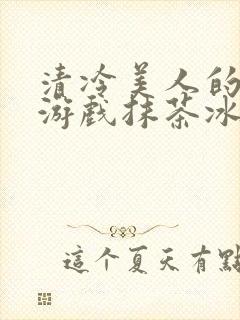 清冷美人的
游戏抹茶冰
這个夏天有點